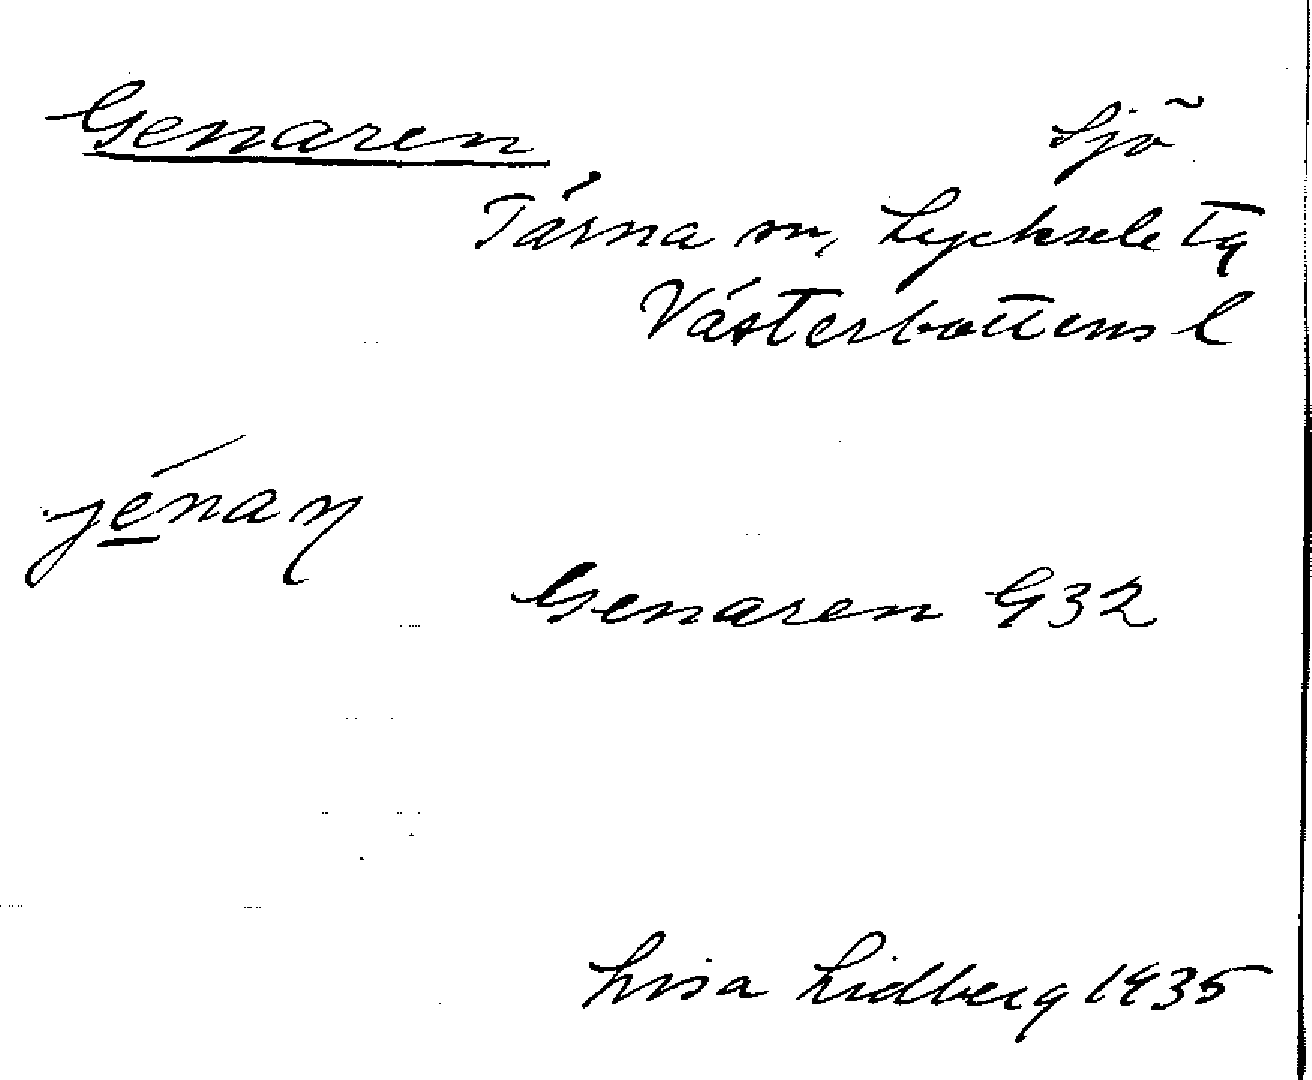 Genaren Sjö
Tärna sn, Lycksele tg
Västerbottens l
jénaṉ
Genaren G32
Lisa Lidberg 1935